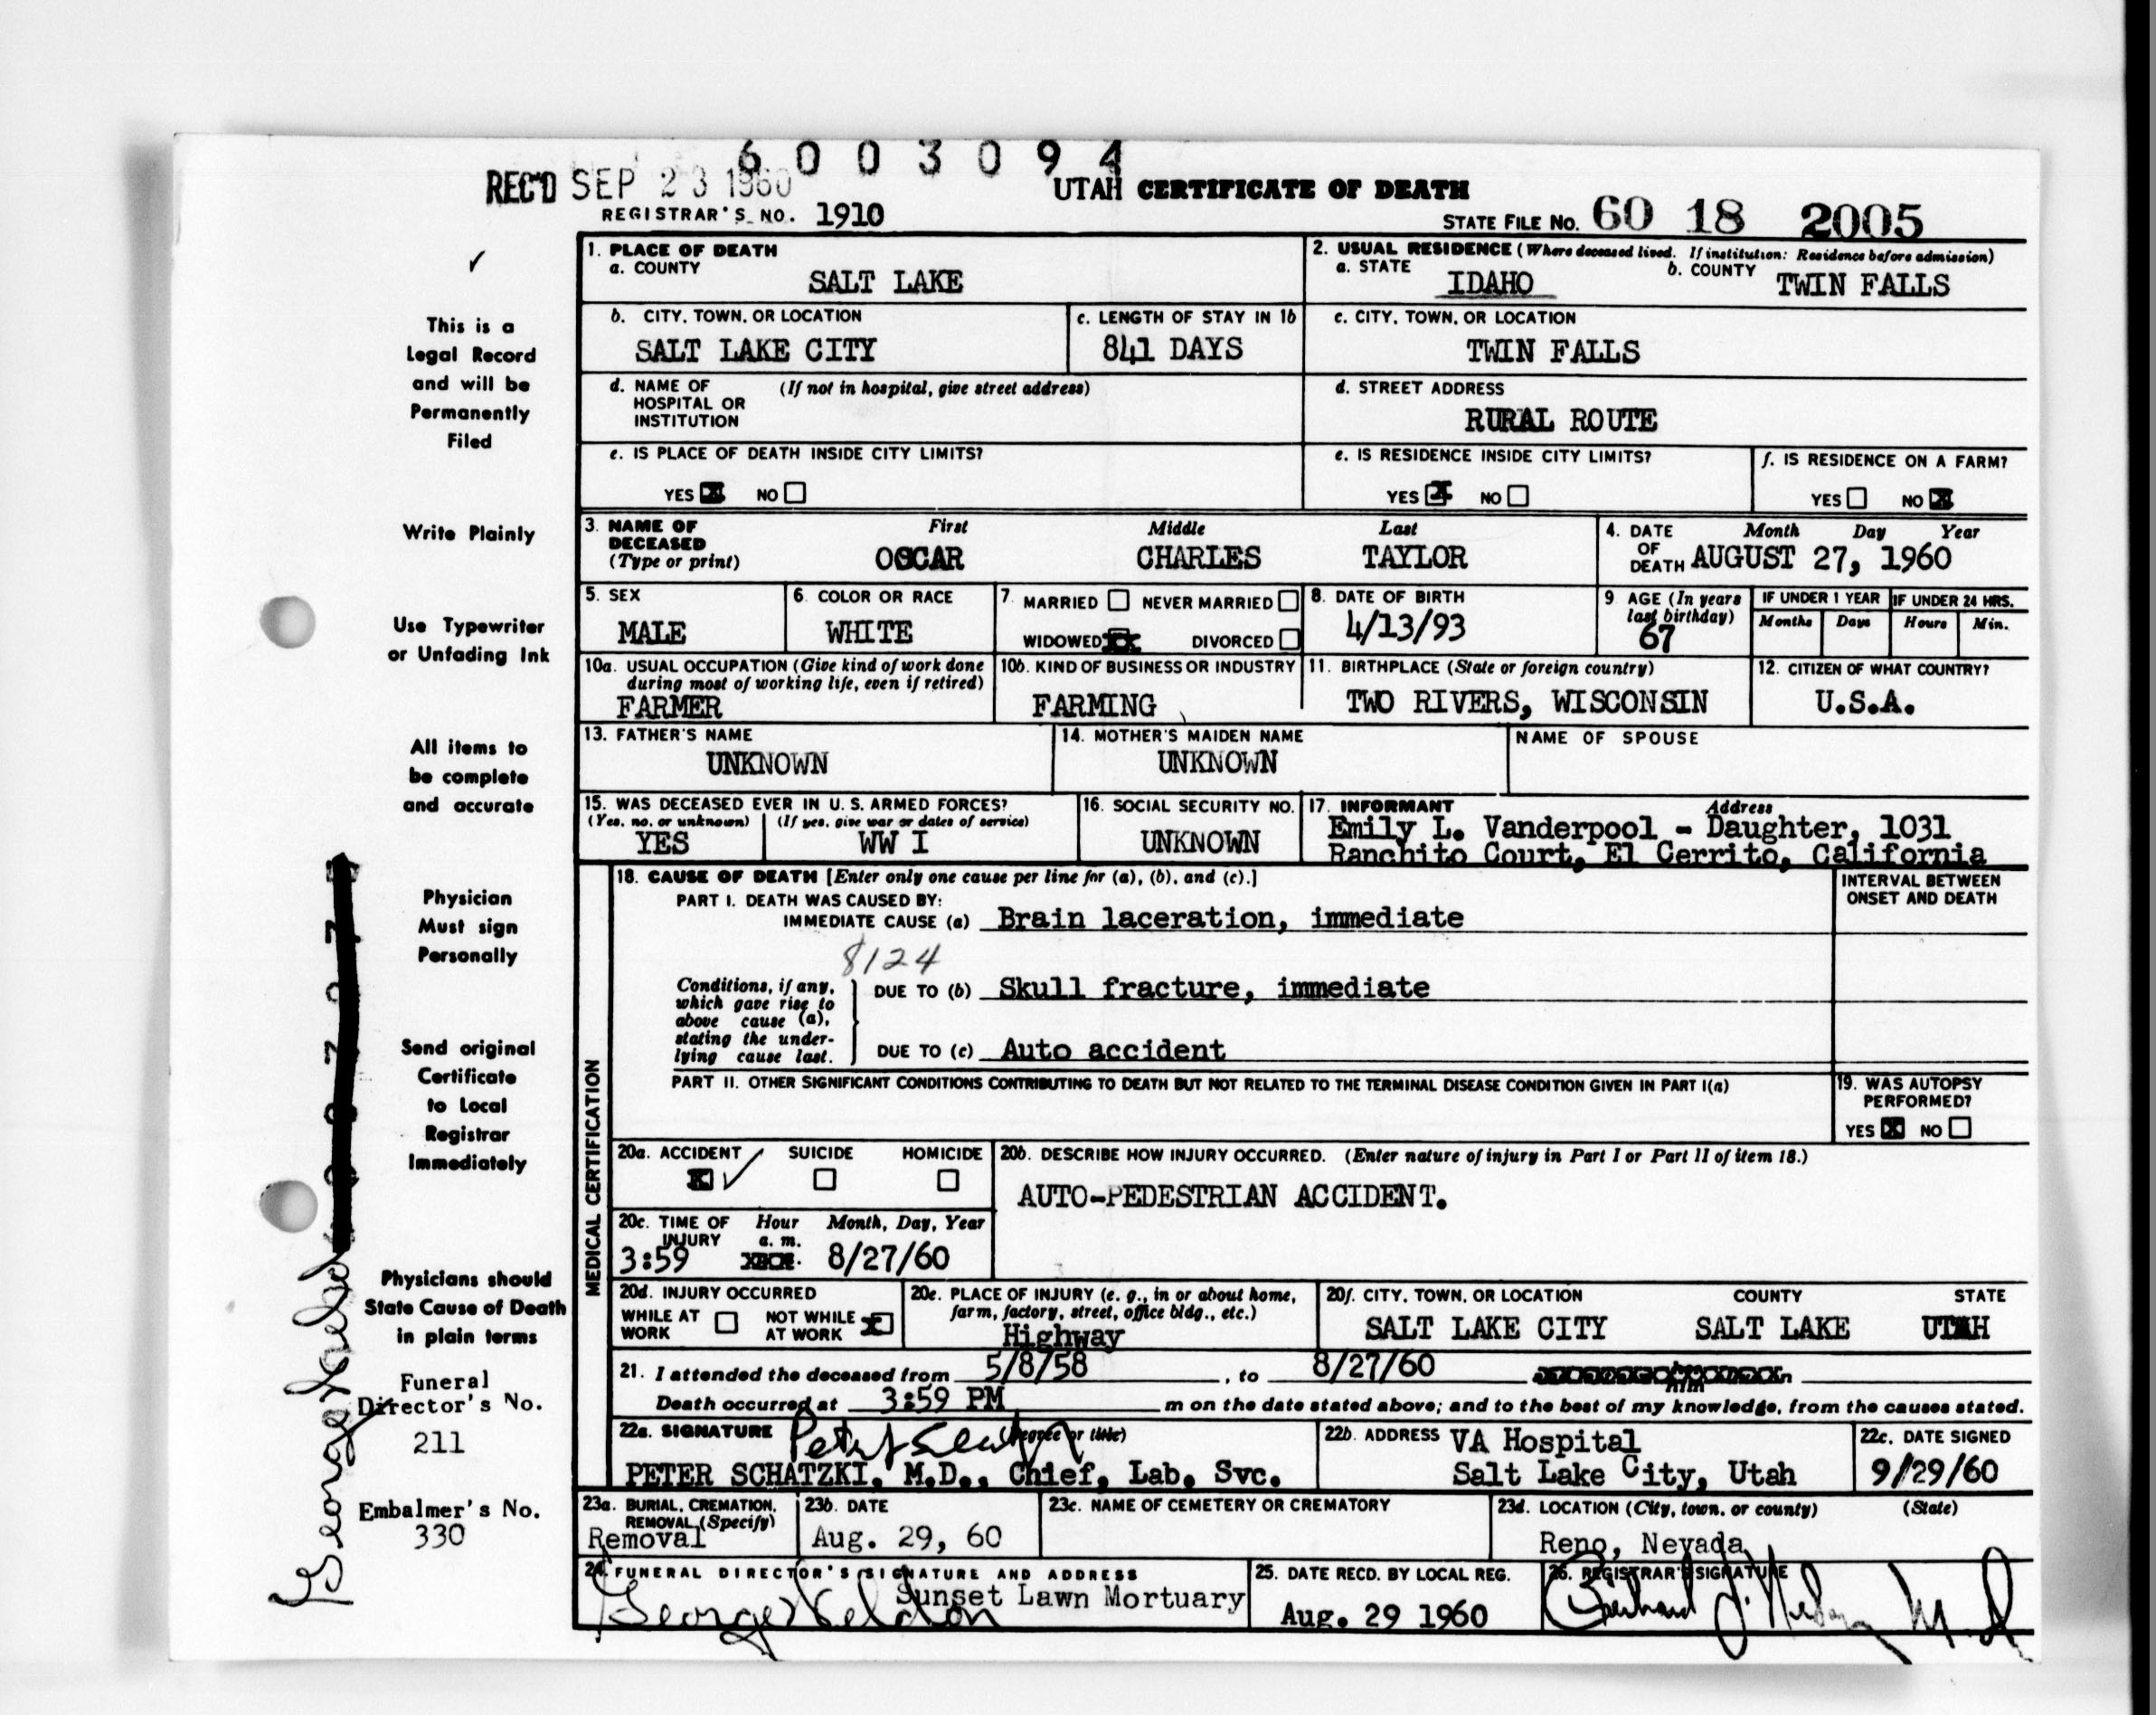 6003094
REC'D SEP 23 1960
UTAH CERTIFICATE OF DEATH
REGISTRAR'S NO. 1910
STATE FILE NO. 60 18 2005
✓
This is a
Legal Record
and will be
Permanently
Filed
Write Plainly
Use Typewriter
or Unfading Ink
All items to
be complete
and accurate
Physician
Must sign
Personally
Send original
Certificate
to Local
Registrar
Immediately
Physicians should
State Cause of Death
in plain terms
Funeral
Director's No.
211
Embalmer's No.
330
1. PLACE OF DEATH
a. COUNTY
SALT LAKE
2. USUAL RESIDENCE (Where deceased lived. If institution: Residence before admission)
a. STATE IDAHO b. COUNTY TWIN FALLS
b. CITY, TOWN, OR LOCATION
SALT LAKE CITY
c. LENGTH OF STAY IN 1b
841 DAYS
c. CITY, TOWN, OR LOCATION
TWIN FALLS
d. NAME OF (If not in hospital, give street address)
HOSPITAL OR
INSTITUTION
d. STREET ADDRESS
RURAL ROUTE
e. IS PLACE OF DEATH INSIDE CITY LIMITS?
YES X NO
e. IS RESIDENCE INSIDE CITY LIMITS?
YES X NO
f. IS RESIDENCE ON A FARM?
YES NO X
3. NAME OF First Middle Last
DECEASED
(Type or print) OSCAR CHARLES TAYLOR
4. DATE Month Day Year
OF
DEATH AUGUST 27, 1960
5. SEX
MALE
6. COLOR OR RACE
WHITE
7. MARRIED NEVER MARRIED
WIDOWED XX DIVORCED
8. DATE OF BIRTH
4/13/93
9 AGE (In years
last birthday)
67
IF UNDER 1 YEAR
Months Days
IF UNDER 24 HRS.
Hours Min.
10a. USUAL OCCUPATION (Give kind of work done
during most of working life, even if retired)
FARMER
10b. KIND OF BUSINESS OR INDUSTRY
FARMING
11. BIRTHPLACE (State or foreign country)
TWO RIVERS, WISCONSIN
12. CITIZEN OF WHAT COUNTRY?
U.S.A.
13. FATHER'S NAME
UNKNOWN
14. MOTHER'S MAIDEN NAME
UNKNOWN
NAME OF SPOUSE
15. WAS DECEASED EVER IN U. S. ARMED FORCES?
(Yes, no, or unknown) (If yes, give war or dates of service)
YES WW I
16. SOCIAL SECURITY NO.
UNKNOWN
17. INFORMANT Address
Emily L. Vanderpool - Daughter, 1031
Ranchito Court, El Cerrito, California
MEDICAL CERTIFICATION
18. CAUSE OF DEATH [Enter only one cause per line for (a), (b), and (c).]
PART I. DEATH WAS CAUSED BY:
IMMEDIATE CAUSE (a) Brain laceration, immediate
8124
Conditions, if any,
which gave rise to
above cause (a),
stating the under-
lying cause last.
DUE TO (b) Skull fracture, immediate
DUE TO (c) Auto accident
INTERVAL BETWEEN
ONSET AND DEATH
PART II. OTHER SIGNIFICANT CONDITIONS CONTRIBUTING TO DEATH BUT NOT RELATED TO THE TERMINAL DISEASE CONDITION GIVEN IN PART I(a)
19. WAS AUTOPSY
PERFORMED?
YES X NO
20a. ACCIDENT SUICIDE HOMICIDE
X ✓
20b. DESCRIBE HOW INJURY OCCURRED. (Enter nature of injury in Part I or Part II of item 18.)
AUTO-PEDESTRIAN ACCIDENT.
20c. TIME OF Hour Month, Day, Year
INJURY a. m.
3:59 8/27/60
20d. INJURY OCCURRED
WHILE AT NOT WHILE
WORK AT WORK X
20e. PLACE OF INJURY (e. g., in or about home,
farm, factory, street, office bldg., etc.)
Highway
20f. CITY, TOWN, OR LOCATION COUNTY STATE
SALT LAKE CITY SALT LAKE UTAH
21. I attended the deceased from 5/8/58, to 8/27/60
him
Death occurred at 3:59 PM m on the date stated above; and to the best of my knowledge, from the causes stated.
22a. SIGNATURE (Degree or title)
PETER SCHATZKI, M.D., Chief, Lab. Svc.
22b. ADDRESS VA Hospital
Salt Lake City, Utah
22c. DATE SIGNED
9/29/60
23a. BURIAL, CREMATION,
REMOVAL (Specify)
Removal
23b. DATE
Aug. 29, 60
23c. NAME OF CEMETERY OR CREMATORY
23d. LOCATION (City, town, or county) (State)
Reno, Nevada
24. FUNERAL DIRECTOR'S SIGNATURE AND ADDRESS
Sunset Lawn Mortuary
25. DATE RECD. BY LOCAL REG.
Aug. 29 1960
26. REGISTRAR'S SIGNATURE